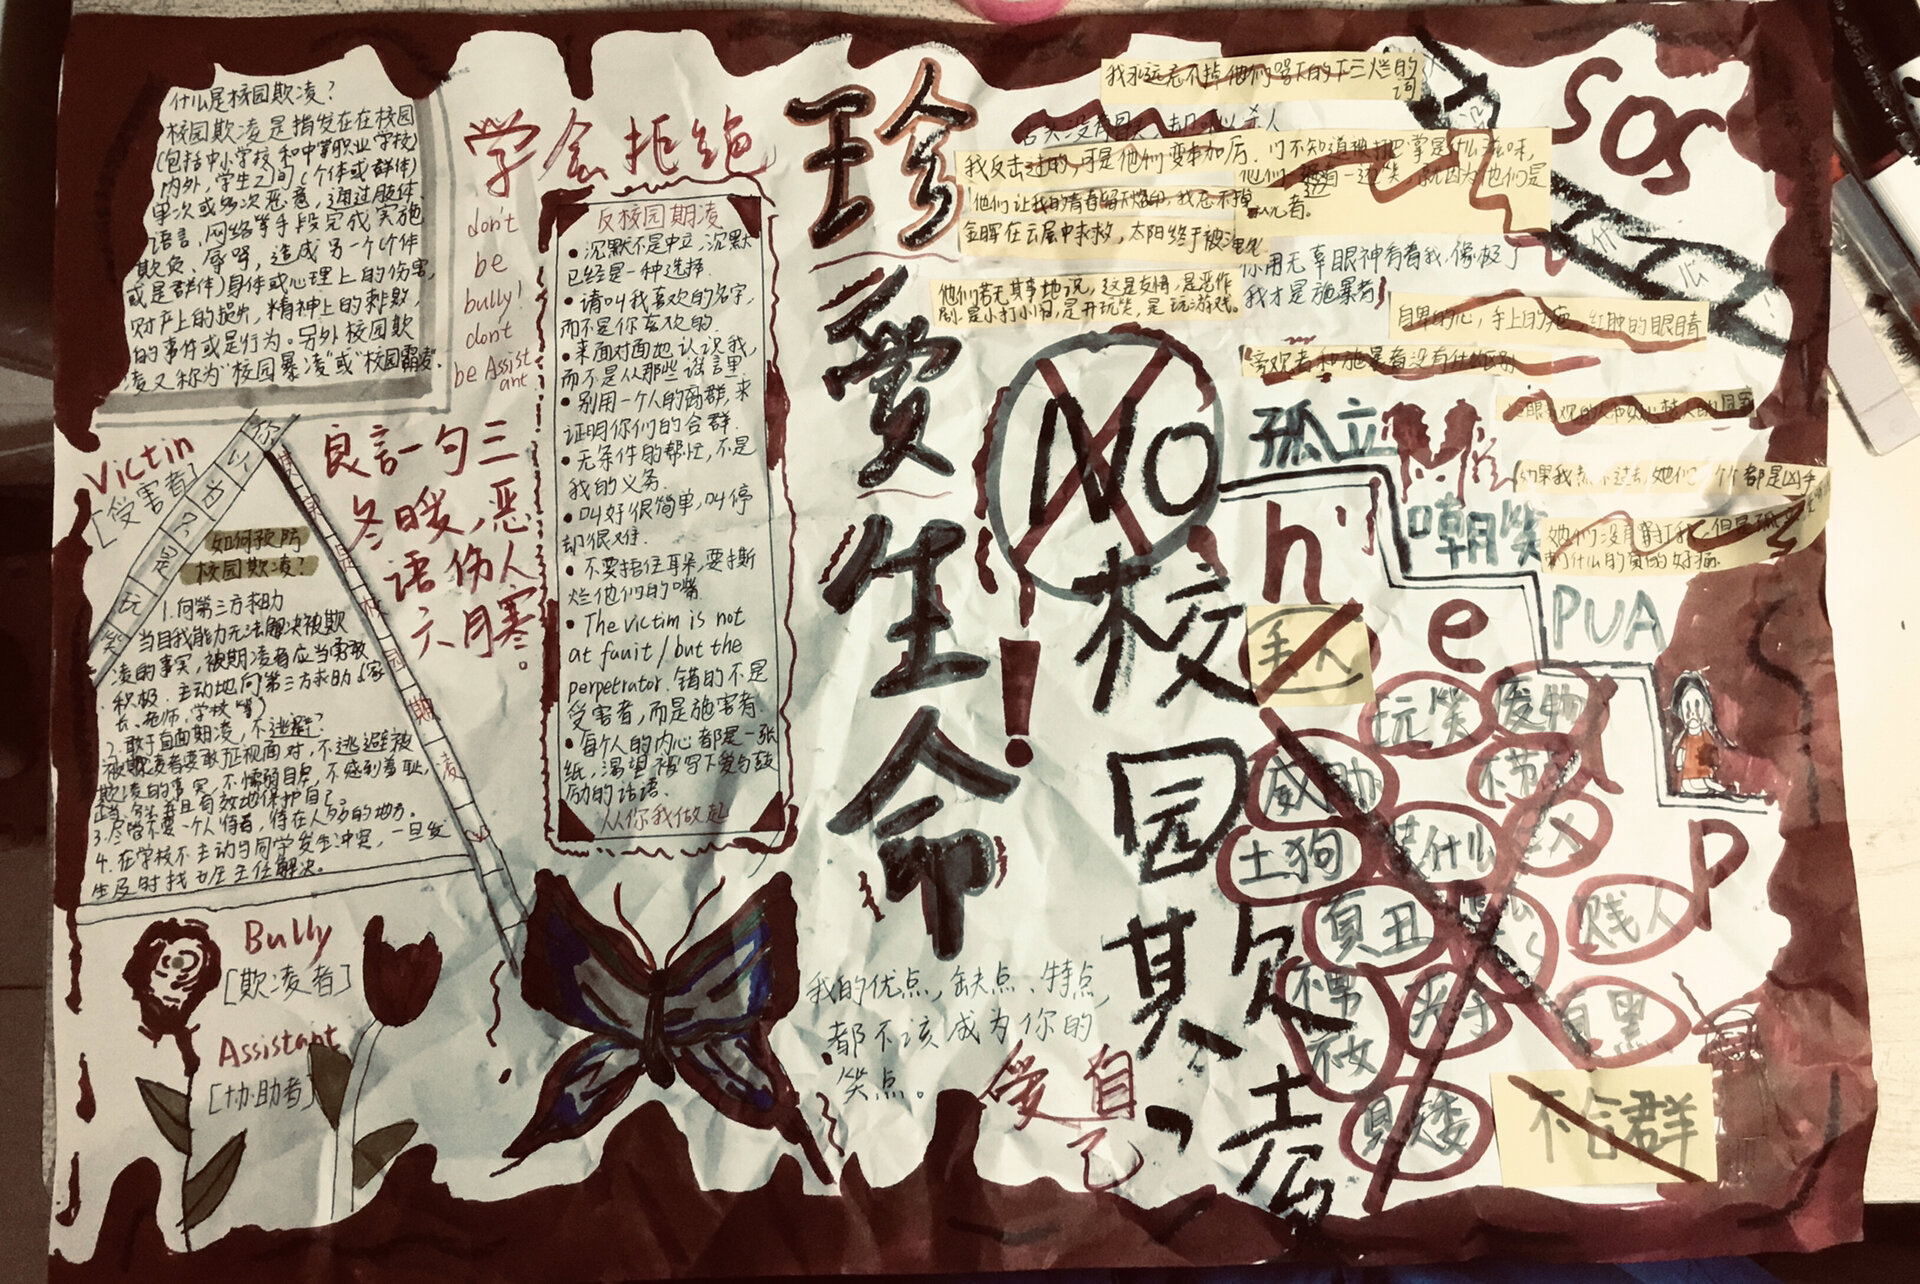 什么是校园欺凌?
校园欺凌是指发在在校园
(包括中小学校和中等职业学校)
内外,学生之间(个体或群体)
单次或多次恶意,通过肢体、
语言、网络等手段完成实施
欺负、辱骂,造成另一个个体
或是群体)身体或心理上的伤害,
财产上的损失,精神上的刺激,
的事件或是行为。另外校园欺
凌又称为“校园暴凌”或“校园霸凌”.
学会拒绝
don't
be
bully!
don't
be Assist
ant
反校园期凌
•沉默不是中立,沉默
已经是一种选择.
•请叫我喜欢的名字,
而不是你喜欢的.
•来面对面地认识我,
而不是从那些谣言里.
•别用一个人的离群,来
证明你们的合群.
•无条件的帮忙,不是
我的义务.
•叫好很简单,叫停
却很难.
•不要捂住耳朵,要撕
烂他们的嘴.
•The victim is not
at fauit/but the
perpetrator.错的不是
受害者,而是施害者.
•每个人的内心都是一张
纸,渴望被写下爱与鼓
励的话语.
从你我做起
Victin
[受害者]
你以为只是玩笑
其实是校园期凌
良言一句三
冬暖,恶
语伤人
六月寒。
如何预防
校园欺凌?
1.向第三方求助
当自我能力无法解决被欺
凌的事实,被期凌者应当勇敢
积极、主动地向第三方求助(家
长、老师、学校等)
2.敢于直面期凌,不逃避?
被欺凌者要敢征视面对,不逃避被
欺凌的事实,不懦弱自卑,不感到羞耻,
且有效地保护自己。
3.尽量不要一个人待着,待在人多的地方.
4.在学校不主动与同学发生冲突,一旦发
生及时找班主任解决。
Bully
[欺凌者]
Assistant
[协助者]
珍爱生命
!
No
校园欺凌
我的优点,缺点、特点,
都不该成为你的
笑点。
爱自己
我永远忘不掉他们骂下的下三烂的
词
舌头没有骨头,却可以杀人
我反击过的,可是他们变本加厉.
他们让我的青春暗无烟印,我忘不掉
金晖在云层中求救,太阳终于被淹没
们不知道被打把掌是什么滋味,
他们边有一边笑,就因为他们是
你用无辜眼神有着我,像极了
我才是施暴者
他们若无其事地说,这是友情,是恶作
剧.是小打小闹,是开玩笑,是玩游戏。
自卑的心,手上的疤,红肿的眼睛
旁观者和施暴者没有什么区别
如果我熬不过去,她们个个都是凶手
她们没有打我,但是
SOS
孤立
嘲笑
PUA
h
e
P
玩笑
废物
威胁
土狗
装什么
真丑
贱人
不男
不女
夹子
真黑
真矮
不合群